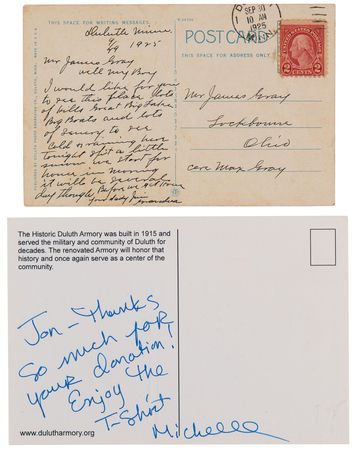 THIS SPACE FOR WRITING MESSAGES.
POST CARD
Duluth Minn
9/29 1925
Mr James Gray
well My Boy
I would like for you
to see this place. lots
of hills Great Big Lake
Big Boats and lots
of scenery to see
cold & raining here
tonight Just a little
we start for
home in morning
it will be several
days though Before we get Home
Grandma
SEP 30
10 AM
1925
MINN.
2 CENTS 2
Mr James Gray
Lockbourne
Ohio
care Max Gray
The Historic Duluth Armory was built in 1915 and
served the military and community of Duluth for
decades. The renovated Armory will honor that
history and once again serve as a center of the
community.
Jon - Thanks
so much for
your donation!
Enjoy the
T-Shirt
Michelle
www.dulutharmory.org